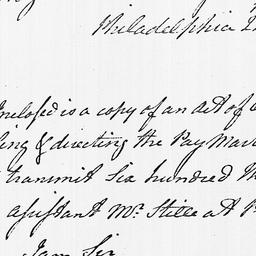 Philadelphia
Inclosed is a copy of an Act of
ing & directing the Pay Mas
transmit Six hundred
assistant Mr. Stille at
I am Sir